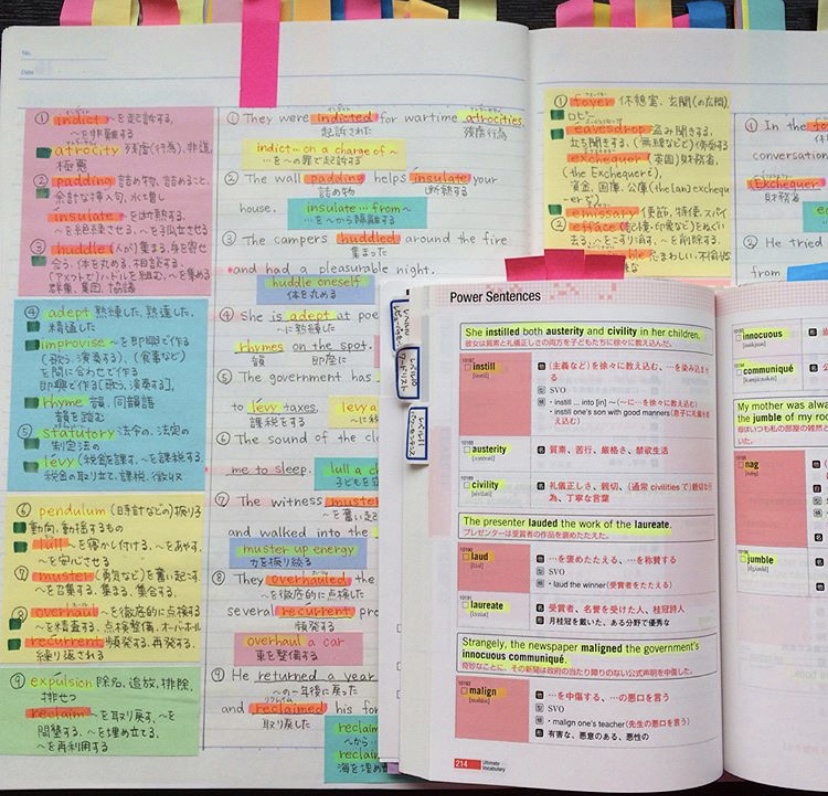 No.
Date
① indict 〜を起訴する、
〜を非難する
atrocity 残虐(行為)、非道、
極悪
② padding 詰め物、詰めること、
余計な挿入句、水増し
insulate 〜を断熱する、
〜を絶縁させる、〜を孤立させる
③ huddle (人が)集まる、身を寄せ
合う、体を丸める、相談する、
(アメフトで)ハドルを組む、〜を集める
群衆、集団、協議
④ adept 熟練した、熟達した、
精通した
improvise 〜を即興で作る
(歌う、演奏する)、(食事など)
を間に合わせで作る
即興で作る[歌う、演奏する]、
rhyme 韻、同韻語
韻を踏む
⑤ statutory 法令の、法定の
制定法の
levy (税金を)課す、〜を課税する、
税金の取り立て、課税、徴収
⑥ pendulum (時計などの)振り子
動向、動揺するもの
lull 〜を寝かし付ける、〜をあやす、
〜を安心させる
⑦ muster (勇気など)を奮い起こす、
〜を召集する、集まる、集合する、
⑧ overhaul 〜を徹底的に点検する
〜を精査する、点検整備、オーバーホール
recurrent 頻発する、再発する、
繰り返される
⑨ expulsion 除名、追放、排除、
排せつ
reclaim 〜を取り戻す、〜を
開墾する、〜を埋め立てる、
〜を再利用する
① They were indicted for wartime atrocities.
起訴された 残虐行為
indict… on a charge of〜
…を〜の罪で起訴する
② The wall padding helps insulate your
詰め物 断熱する
house.
insulate … from〜
…を〜から隔離する
③ The campers huddled around the fire
集まった
and had a pleasurable night.
huddle oneself
体を丸める
④ She is adept at poe
〜に熟練した
rhymes on the spot.
韻 即座に
⑤ The government has
to levy taxes.
課税をする
levy a
⑥ The sound of the clo
me to sleep.
lull a ch
子どもを
⑦ The witness muster
〜を奮い起こ
and walked into the
muster up energy
力を振り絞る
⑧ They overhauled the
〜を徹底的に点検した
several recurrent pro
頻発する
overhaul a car
車を整備する
⑨ He returned a year
〜の一年後に戻った
and reclaimed his for
取り戻した
reclaim
〜から…
reclaim
海を埋め
① foyer 休憩室、玄関(の広間)、
ロビー
eavesdrop 盗み聞きする、
立ち聞きする、(無線など)傍受する
exchequer (英国)財務省、
(the Exchequer)、
資金、国庫、公庫(the [an] exchequ
er で)
emissary 使節、特使、スパイ
② efface
去る、〜をこすり消す、〜を削除する、
① In the fo
conversation
Exchequer
財務省
② He tried
from
Power Sentences
She instilled both austerity and civility in her children.
彼女は質素と礼儀正しさの両方を子どもたちに徐々に教え込んだ。
instill
(主義など)を徐々に教え込む、…を染み込ませ
る
SVO
・instill ... into [in] 〜(…に…を徐々に教え込む)
・instill one's son with good manners(息子に礼儀を教
え込む)
austerity
質素、苦行、厳格さ、禁欲生活
civility
礼儀正しさ、親切、(通常 civilities で)親切な行
為、丁寧な言葉
The presenter lauded the work of the laureate.
プレゼンターは受賞者の作品を褒めたたえた。
laud
…を褒めたたえる、…を称賛する
SVO
・laud the winner(受賞者をたたえる)
laureate
受賞者、名誉を受けた人、桂冠詩人
月桂冠を戴いた、ある分野で優秀な
Strangely, the newspaper maligned the government's
innocuous communiqué.
奇妙なことに、その新聞は政府の当たり障りのない公式声明を中傷した。
malign
…を中傷する、…の悪口を言う
SVO
・malign one's teacher(先生の悪口を言う)
有害な、悪意のある、悪性の
214 Ultimate
Vocabulary
innocuous
communiqué
My mother was alwa
the jumble of my roo
母はいつも私の部屋の雑然と
いた。
nag
jumble